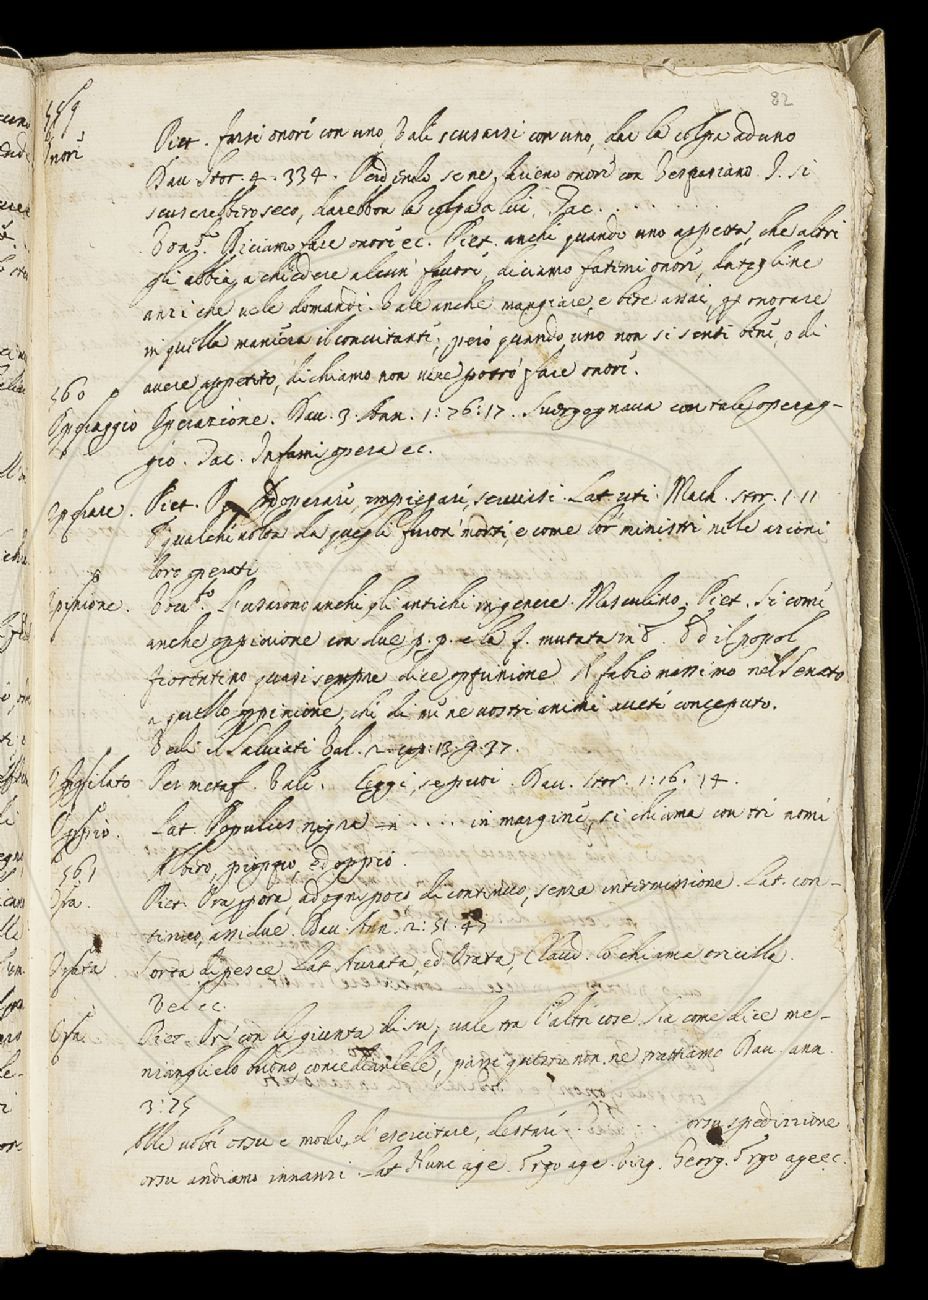 82
559
Onori Piet. Farsi onori con uno, vale scusarsi con uno, dar la colpa ad uno
Dav. Stor. 4. 334. Perdendo se ne, diveno onori con Vespasiano. I. si
scuserebbero seco, darebbon la colpa a lui. Tac. . . . . . . .
Bon.ti Diciamo fare onori ec. Piet. anche quando uno aspetta, che altri
gli abbia a chiedere alcun favori, diciamo fatimi onori, dategliene
anzi che ve le domandi. Vale anche mangiare, e bere assai, p onorare
in quella maniera il convitanti; però quando uno non si senti beni, o di
avere appetito, dichiamo non viene potrò fare onori.
560
Operaggio Operazione. Dav. 3. Ann. 1: 76: 17. Svergognava con tale operag-
gio. Tac. Infami opera ec.
Operare. Piet. P. Adoperari, impiegari, servirsi. Lat. uti. Mach. Stor. 1. 11
E qualchi volta da quegli furon morti, e come lor ministri nelle azioni
loro operati
Opinione. L'usarono anchi gli antichi in genere Masculino. Piet. Si comi
anche oppinione con due p. p. e la f. mutata in
fiorentino quasi sempre dice opfinione. A fabio massimo nel Senato
a quello oppinione, chi di mi ne vostri animi aveti conceputo.
Vedi il Salviati Val. 2. cap: 13. g. 37.
Oppilato Per metaf. Vali. Leggi, se puoi. Dav. Stor. 1: 16. 14.
Oppio. Lat. Populus nigra . . . . . in margini, si chiama con tri nomi
Albero, pioppo, ed oppio.
561
Ora. Piet. Ora ora, ad ogni poco di continuo, senza intermissione. Lat. con-
tinuo, amidue. Dav. Ann. 2: 51. 47
Orata Sorta di pesce Lat. Aurata, ed Orata, Claud. lo chiama oriculla.
Vel ec.
Orsu. Piet. Ori con la giunta di su, vale tra l'altri cose Sia come dice me-
nianglielo buono, concediamlele, pure questo non ne mattiamo Dav. Ann.
3: 25
Alle volti orsu e modo, d'esercitare, destari . . . . orsu spedizione
orsu andiamo innanzi. Lat. Nunc age. Ergo age. Virg. Georg. Ergo age ec.